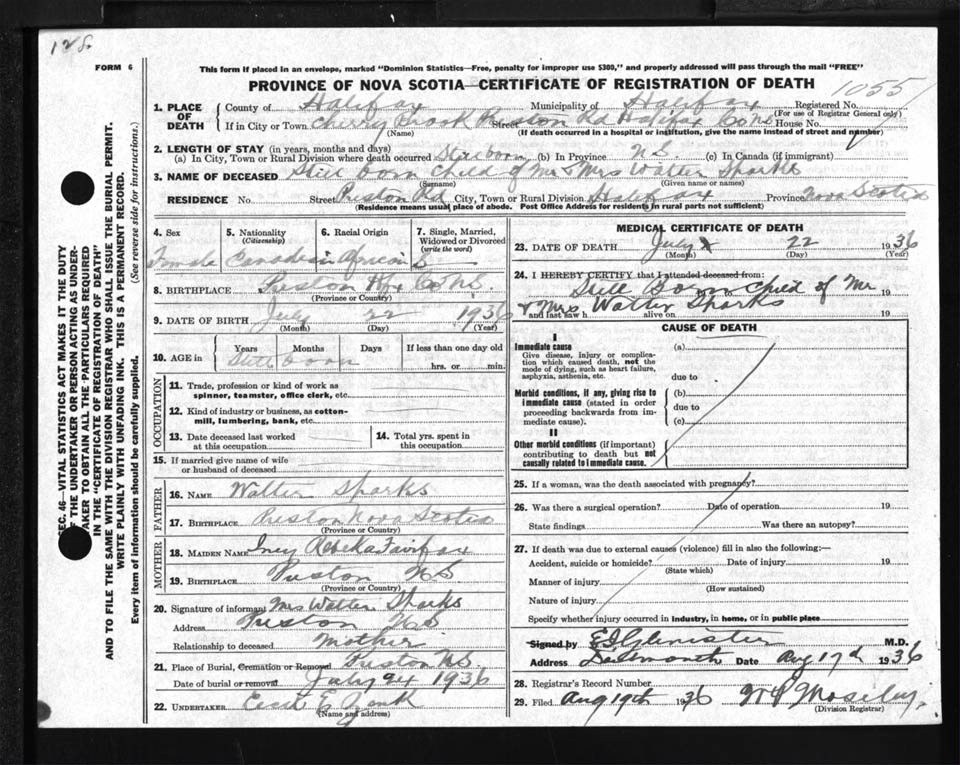 128
FORM 6
This form if placed in an envelope, marked "Dominion Statistics—Free, penalty for improper use $300," and properly addressed will pass through the mail "FREE"
PROVINCE OF NOVA SCOTIA—CERTIFICATE OF REGISTRATION OF DEATH
1055
1. PLACE OF DEATH
County of Halifax Municipality of Halifax Registered No.
(For use of Registrar General only)
If in City or Town Cherry Brook Preston Rd Halifax Co NS House No.
Street
(Name) (If death occurred in a hospital or institution, give the name instead of street and number)
2. LENGTH OF STAY (in years, months and days)
(a) In City, Town or Rural Division where death occurred Stillborn (b) In Province N.S. (c) In Canada (if immigrant)
3. NAME OF DECEASED Still born child of Mr & Mrs Walter Sparks
(Surname) (Given name or names)
RESIDENCE No. Street Preston Rd City, Town or Rural Division Halifax Province Nova Scotia
(Residence means usual place of abode. Post Office Address for residents in rural parts not sufficient)
4. Sex
Female
5. Nationality
(Citizenship)
Canadian
6. Racial Origin
African
7. Single, Married, Widowed or Divorced
(write the word)
S
8. BIRTHPLACE Preston Hfx Co NS.
(Province or Country)
9. DATE OF BIRTH July 22 1936
(Month) (Day) (Year)
10. AGE in Years Months Days If less than one day old
Still born hrs. or min.
OCCUPATION
11. Trade, profession or kind of work as spinner, teamster, office clerk, etc.
12. Kind of industry or business, as cotton-mill, lumbering, bank, etc.
13. Date deceased last worked at this occupation
14. Total yrs. spent in this occupation
15. If married give name of wife or husband of deceased
FATHER
16. NAME Walter Sparks
17. BIRTHPLACE Preston Nova Scotia
(Province or Country)
MOTHER
18. MAIDEN NAME Iney Rebeka Fairfax
19. BIRTHPLACE Preston NS
(Province or Country)
20. Signature of informant Mrs Walter Sparks
Address Preston N.S
Relationship to deceased Mother
21. Place of Burial, Cremation or Removal Preston NS.
Date of burial or removal July 24 1936
22. UNDERTAKER E
(Name and address)
MEDICAL CERTIFICATE OF DEATH
23. DATE OF DEATH July 22 1936
(Month) (Day) (Year)
24. I HEREBY CERTIFY that I attended deceased from:
Still Born Child of Mr 19
& Mrs Walter Sparks
and last saw h alive on 19
CAUSE OF DEATH
I
Immediate cause (a)
Give disease, injury or complication which caused death, not the mode of dying, such as heart failure, asphyxia, asthenia, etc.
due to
Morbid conditions, if any, giving rise to immediate cause (stated in order proceeding backwards from immediate cause).
(b)
due to
(c)
II
Other morbid conditions (if important) contributing to death but not causally related to immediate cause.
25. If a woman, was the death associated with pregnancy?
26. Was there a surgical operation? Date of operation 19
State findings Was there an autopsy?
27. If death was due to external causes (violence) fill in also the following:—
Accident, suicide or homicide? Date of injury 19
(State which)
Manner of injury
(How sustained)
Nature of injury
Specify whether injury occurred in industry, in home, or in public place
Signed by M.D.
Address Dartmouth Date Aug 17th 1936
28. Registrar's Record Number
29. Filed Aug 19th 1936 Moseley
(Division Registrar)
SEC. 46—VITAL STATISTICS ACT MAKES IT THE DUTY
OF THE UNDERTAKER OR PERSON ACTING AS UNDER-
TAKER TO OBTAIN ALL THE "PARTICULARS REQUIRED
IN THE "CERTIFICATE OF REGISTRATION OF DEATH"
AND TO FILE THE SAME WITH THE DIVISION REGISTRAR WHO SHALL ISSUE THE BURIAL PERMIT.
WRITE PLAINLY WITH UNFADING INK. THIS IS A PERMANENT RECORD.
Every item of information should be carefully supplied. (See reverse side for instructions.)